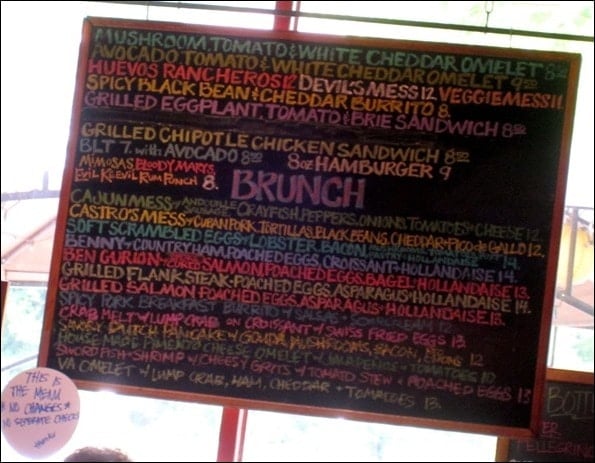 MUSHROOM, TOMATO & WHITE CHEDDAR OMELET 8.50
AVOCADO TOMATO & WHITE CHEDDAR OMELET
HUEVOS RANCHEROS 12. DEVIL'S MESS 12. VEGGIE MESS 11.
SPICY BLACK BEAN & CHEDDAR BURRITO 8.
GRILLED EGGPLANT, TOMATO & BRIE SANDWICH 8.50
GRILLED CHIPOTLE CHICKEN SANDWICH 8.50
BLT 7. with AVOCADO 8.50 8oz HAMBURGER 9
MIMOSAS, BLOODY MARYS,
EVIL KNEVIL RUM PUNCH 8.
BRUNCH
CAJUN MESS w/ ANDOUILLE SAUSAGE CRAYFISH, PEPPERS, ONIONS, TOMATOES & CHEESE 12.
CASTRO'S MESS w/ CUBAN PORK, TORTILLAS, BLACK BEANS, CHEDDAR + PICO de GALLO 12.
SOFT SCRAMBLED EGGS w/ LOBSTER, BACON, HOLLANDAISE 14.
BENNY w/ COUNTRY HAM, POACHED EGGS, CROISSANT + HOLLANDAISE 14.
BEN GURION w/ SALMON, POACHED EGGS, BAGEL + HOLLANDAISE 13.
GRILLED FLANK STEAK + POACHED EGGS, ASPARAGUS + HOLLANDAISE 14.
GRILLED SALMON, POACHED EGGS, ASPARAGUS + HOLLANDAISE 13.
SPICY PORK BREAKFAST BURRITO w/ SALSA + SOUR CREAM 12.
CRAB MELT w/ LUMP CRAB on CROISSANT w/ SWISS FRIED EGGS 13.
SAVORY DUTCH PANCAKE w/ GOUDA, MUSHROOMS, BACON, 12
HOUSE MADE PIMENTO CHEESE OMELET w/ JALAPENOS + TOMATOES 10
SWORDFISH + SHRIMP w/ CHEESY GRITS w/ TOMATO STEW + POACHED EGGS 13
VA OMELET w/ LUMP CRAB, HAM, CHEDDAR + TOMATOES 13.
THIS IS
THE MENU
* NO CHANGES *
NO SEPARATE CHECKS
thanks
PELLEGRIN